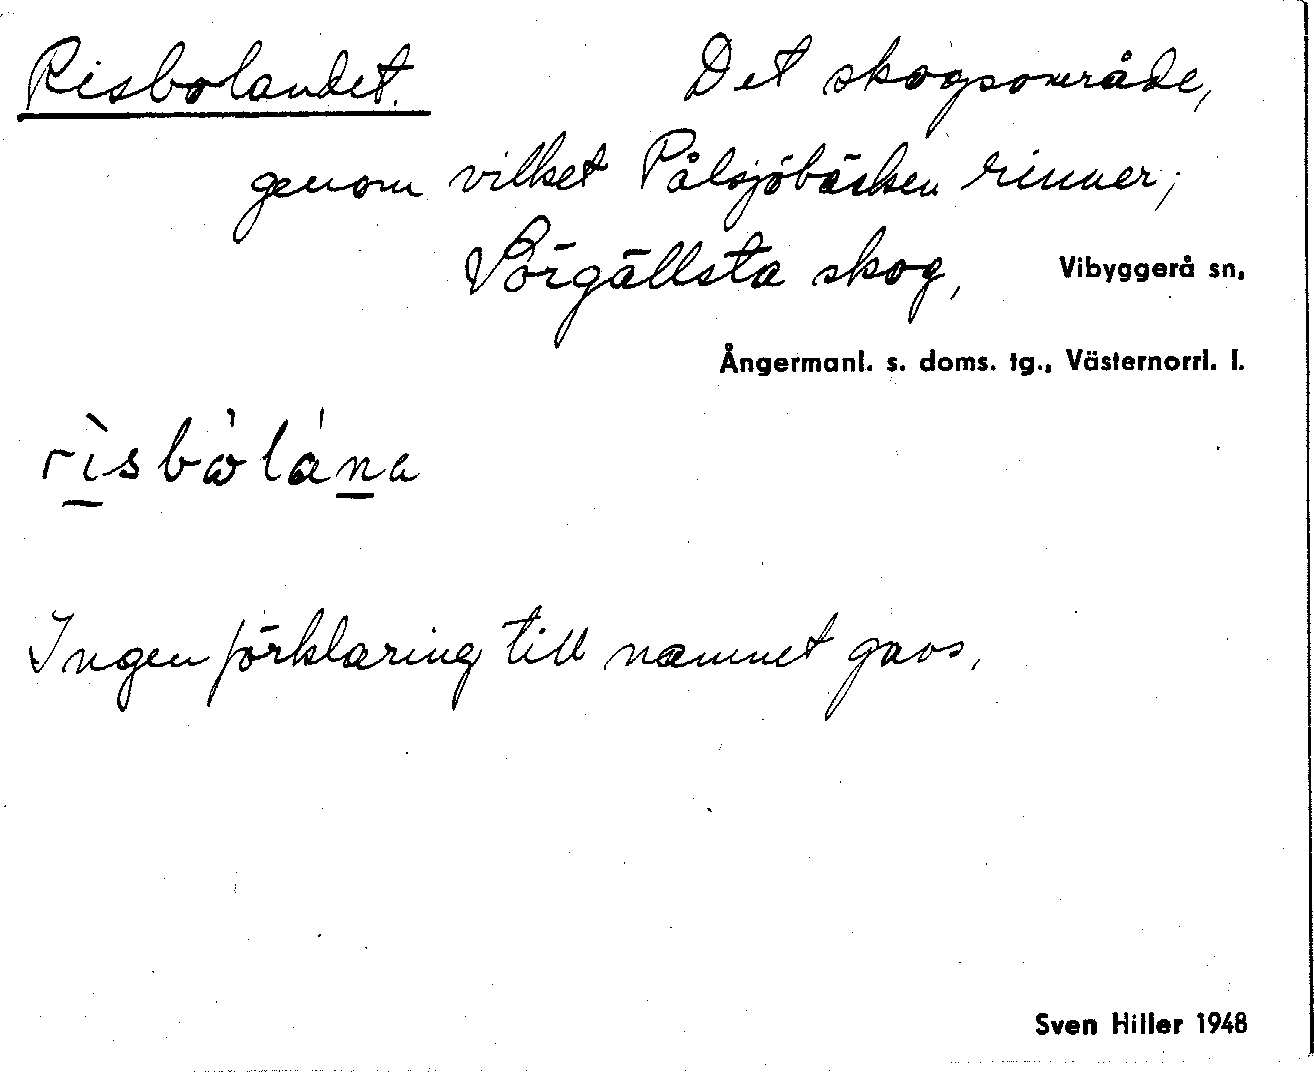 Risbolandet. Det skogsområde,
genom vilket Pålsjöbäcken rinner,
skog, Vibyggerå sn,
Ångermanl. s. doms. tg., Västernorrl. l.
Ingen förklaring till namnet gavs.
Sven Hiller 1948